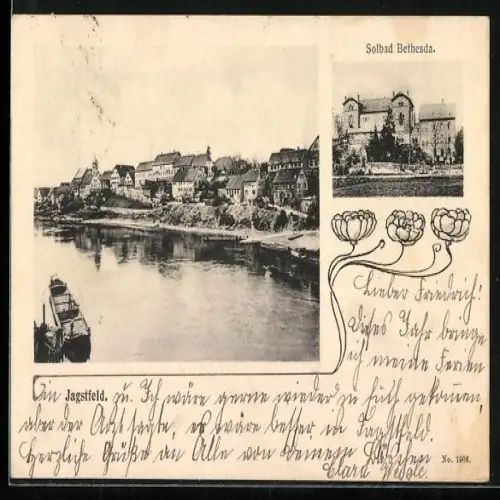 Solbad Bethesda.
Lieber Friedrich!
Dies Jahr bringe
ich meine Ferien
in Jagstfeld. zu. Ich wäre gerne wieder zu Fuß gekommen,
aber der Arzt sagte, es wäre besser in Jagstfeld.
Herzliche Grüße an Alle von Deinem
Clara
No. 1906.